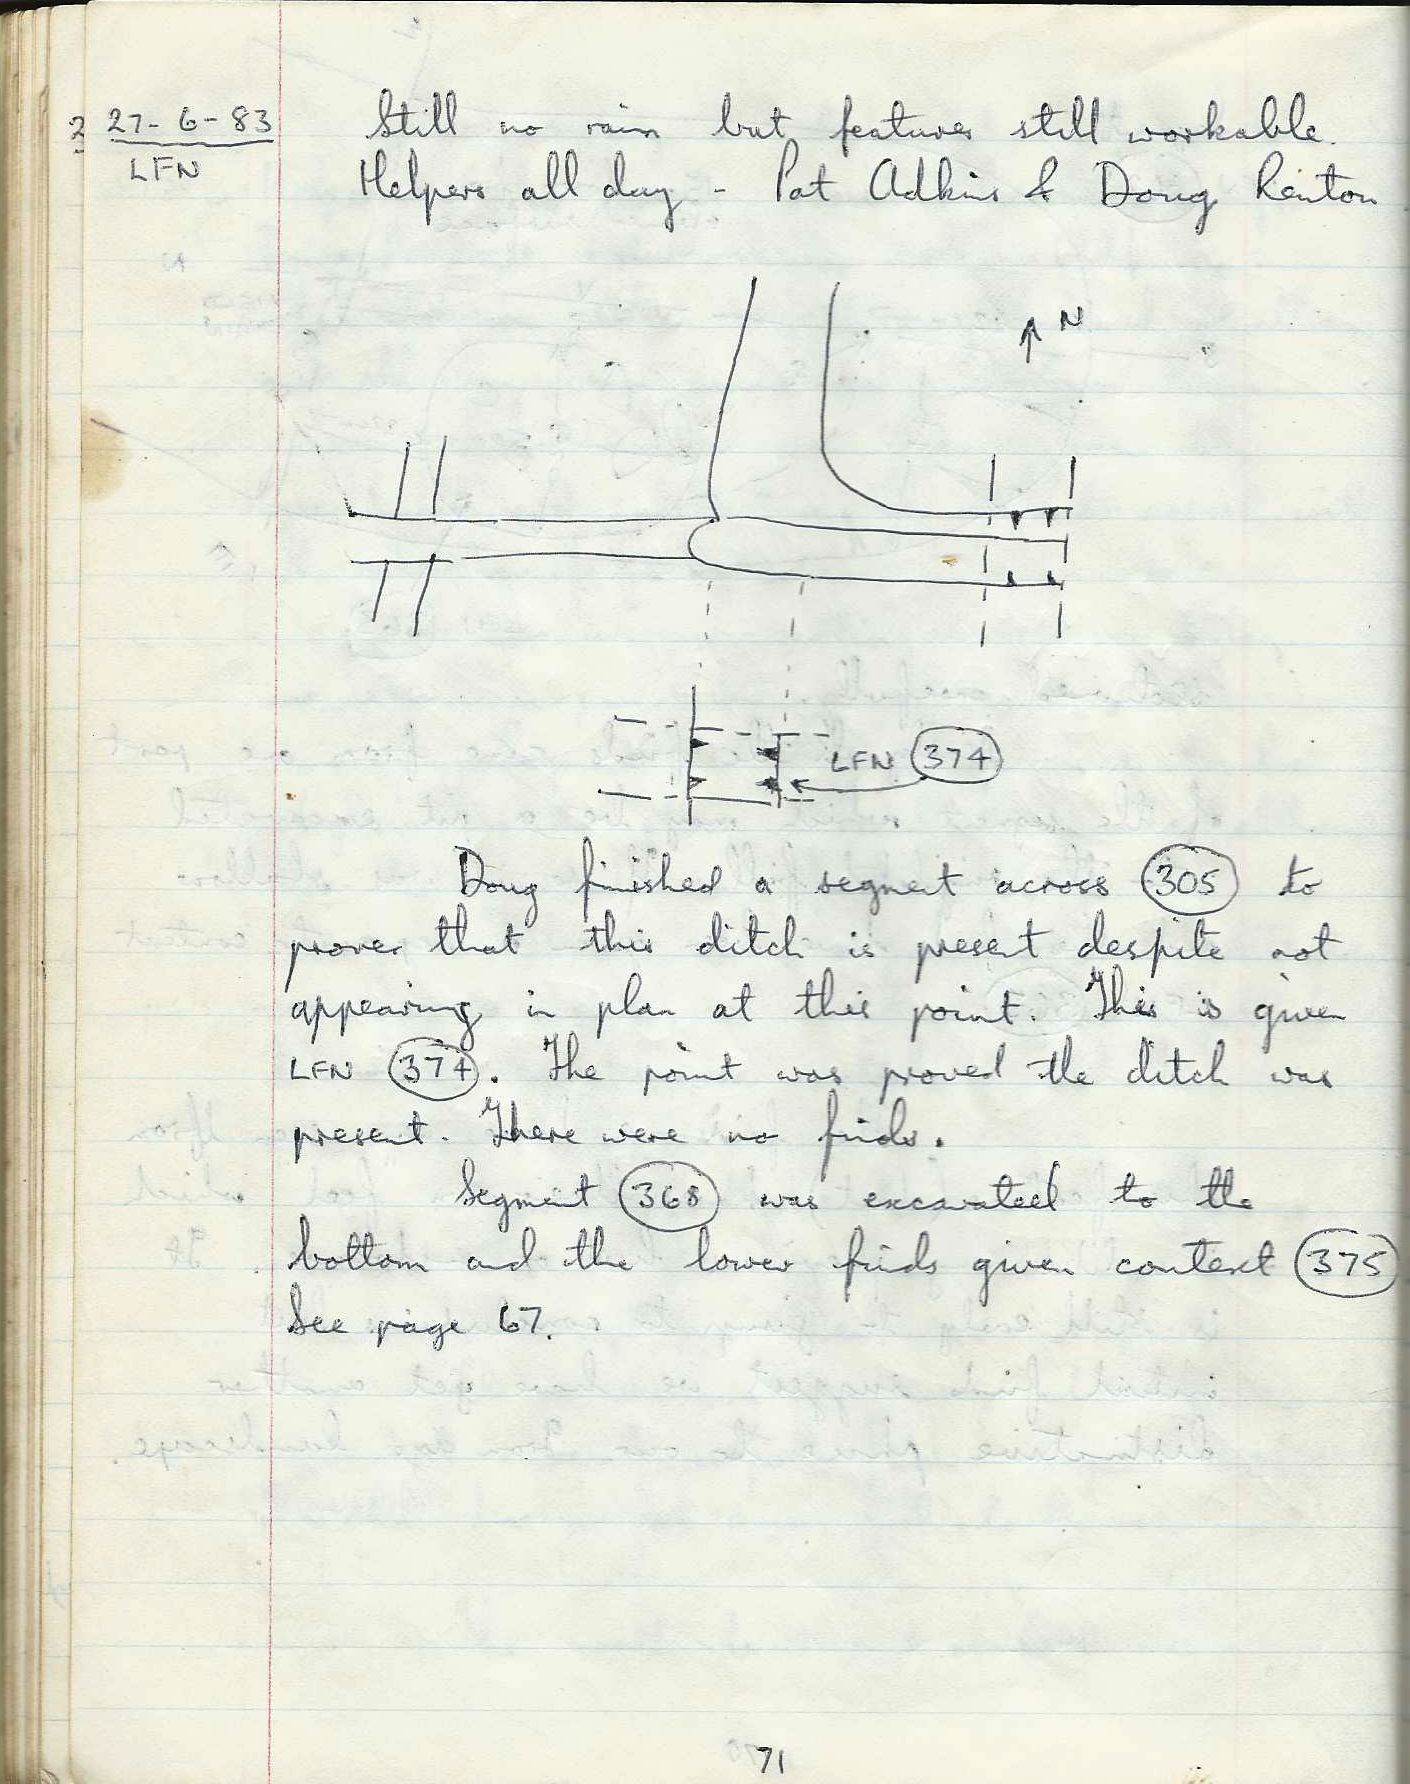 27-6-83
LFN
Still no rain but features still workable.
Helpers all day - Pat Adkins & Doug Renton
N
LFN 374
Doug finished a segment across 305 to
prove that this ditch is present despite not
appearing in plan at this point. This is given
LFN 374. The point was proved the ditch was
present. There were no finds.
Segment 368 was excavated to the
bottom and the lower finds given context 375
See page 67.
71